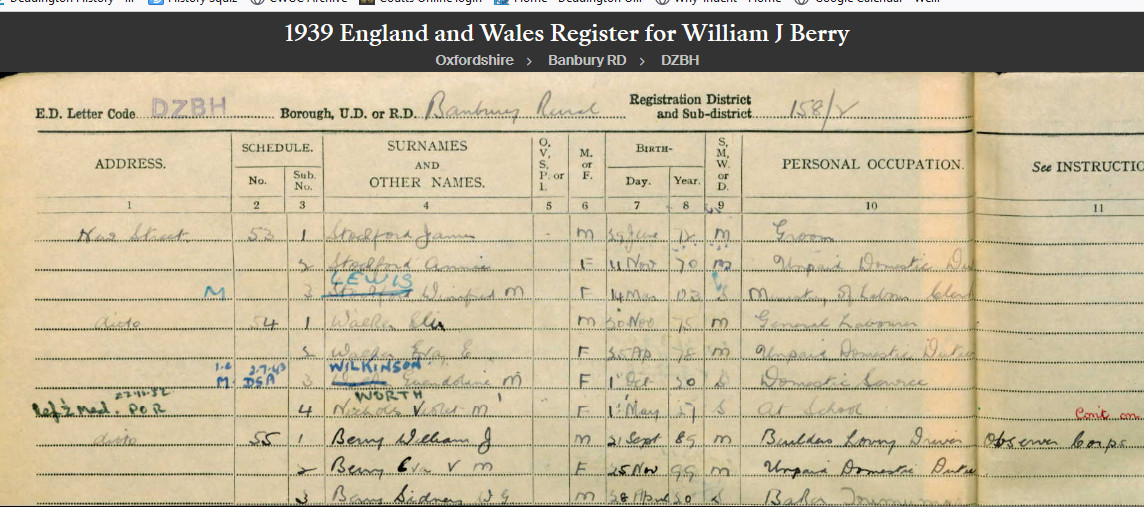 Deddington History History Squiz CWGC Archive Coutts Online login Home - Deddington On Why 'Indent' Home Google Calendar - Well
1939 England and Wales Register for William J Berry
Oxfordshire > Banbury RD > DZBH
E.D. Letter Code DZBH Borough, U.D. or R.D. Banbury Rural Registration District and Sub-district 158/2
ADDRESS. SCHEDULE. No. Sub. No. SURNAMES AND OTHER NAMES. O, V, S, P. or I. M. or F. BIRTH- Day. Year. S, M, W. or D. PERSONAL OCCUPATION. See INSTRUCTIO
1 2 3 4 5 6 7 8 9 10 11
New Street 53 1 Stockford James - M 72 M Groom
2 Stockford Annie F 11 Nov 70 M Unpaid Domestic
LEWIS
M 3 Winifred M F 14 Mar 03 S Ministry of Labour Clerk
ditto 54 1 Walker M 30 Nov 75 M General Labourer
2 Walker E F 25 Ap 78 M Unpaid Domestic Duties
WILKINSON
M. DSA 3 Gwendoline M F 1 Oct 20 S Domestic Service
WORTH
Ref 2 Med. POR 4 Nichols Violet M F 1 May 27 S At School Cont on
ditto 55 1 Berry William J M 21 Sept 89 M Builders Lorry Driver Observer Corps
2 Berry Eva V M F 25 Nov 99 M Unpaid Domestic Duties
3 Berry Sidney W G M 28 April 20 S Baker